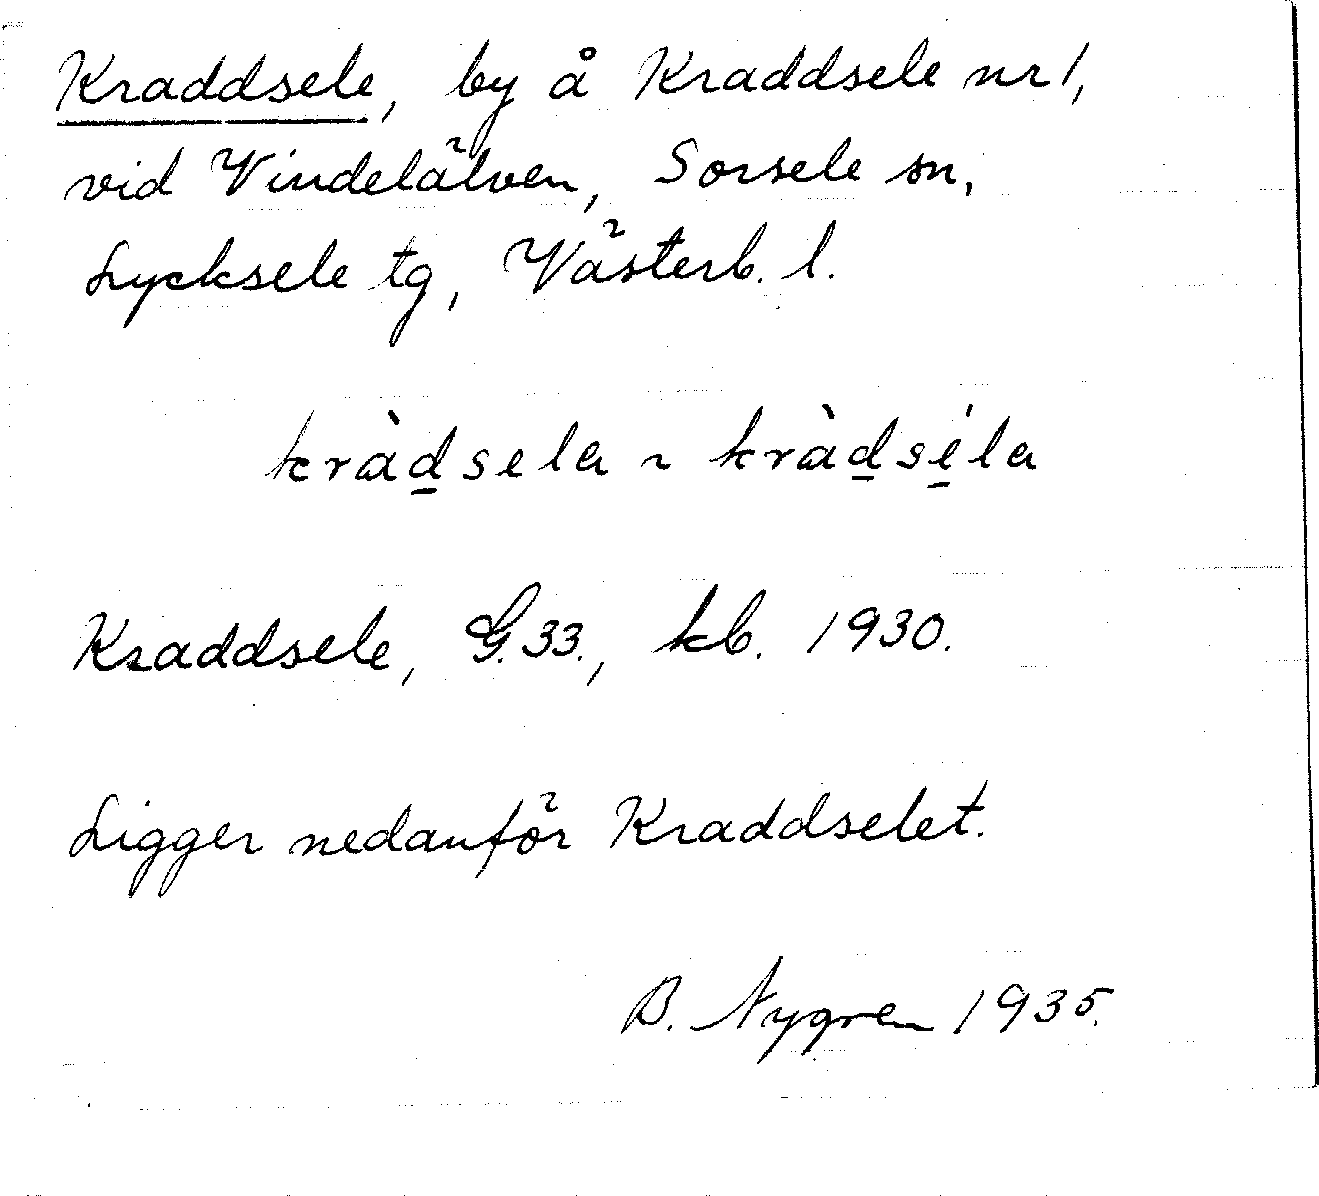 Kraddsele, by å Kraddsele nr 1,
vid Vindelälven, Sorsele sn,
Lycksele tg, Västerb. l.
kràd̲sela ~ kràd̲sé̲la
Kraddsele, G. 33., kb. 1930.
Ligger nedanför Kraddselet.
B. Nygren 1935.